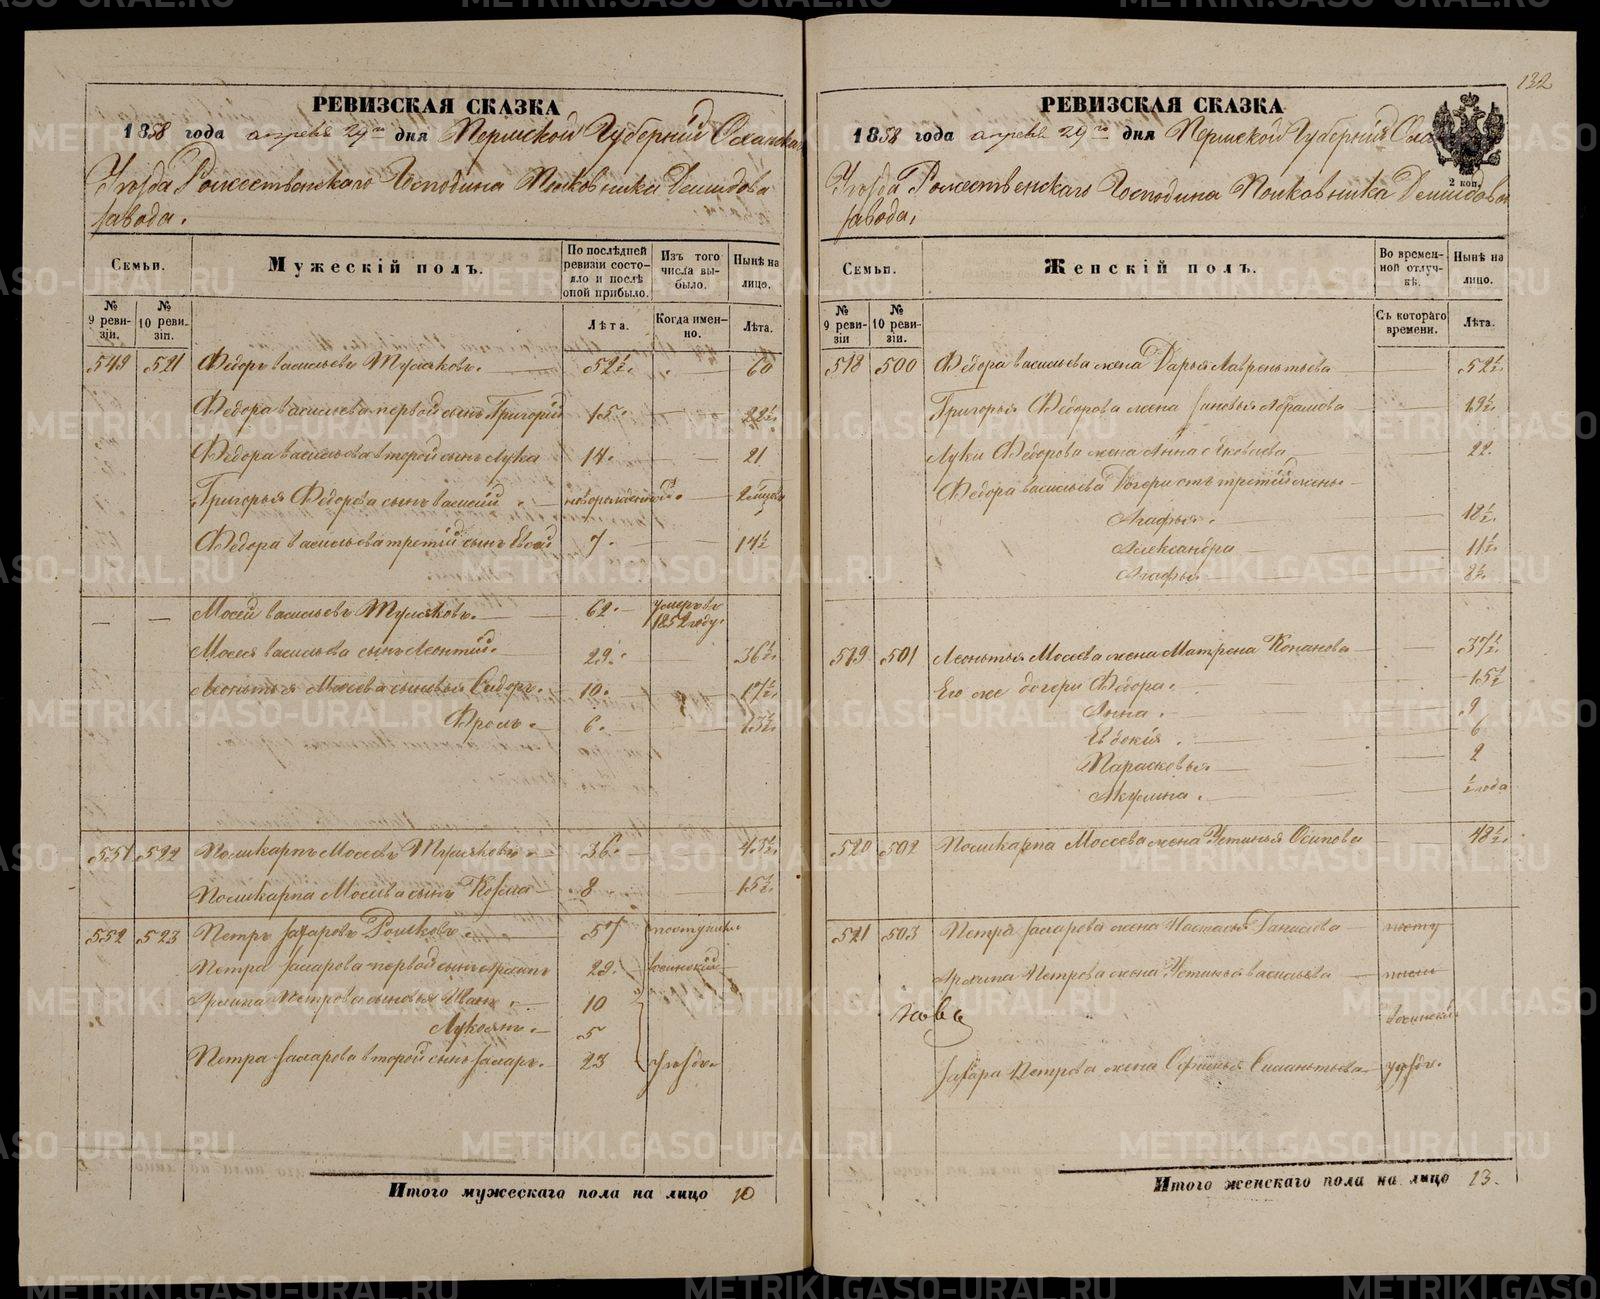 132
РЕВИЗСКАЯ СКАЗКА
1858 года апреля 29го дня Пермской Губернии Оханскаго
Уезда Рожественскаго Господина Полковника Демидова
завода.
Семьи.
Мужескiй полъ.
По послѣдней ревизiи состояло и послѣ оной прибыло.
Изъ того числа выбыло.
Нынѣ на лицо.
№ 9 ревизiи.
№ 10 ревизiи.
Лѣта.
Когда именно.
Лѣта.
549 521 Федоръ Васильевъ Тумаковъ. 52½. 60
Федора Васильева первой сынъ Григорiй 15. 22½.
Федора Васильева второй сынъ Лука 14. 21
Григорья Федорова сынъ Василiй новорожденной
Федора Васильева третiй сынъ 7. 14½
Мосей Васильевъ Тумаковъ. 62. умеръ въ 1852 году.
Мосея Васильева сынъ Леонтiй. 29. 36½.
Леонтья Мосеева сыновья Сидоръ. 10. 17½.
Фролъ. 6. 13½.
551 522 Поликарпъ Мосеевъ Тумаковъ. 36. 43½.
Поликарпа Мосеева сынъ Козма 8 15½.
552 523 Петръ Захаровъ 57 поступили
Петра Захарова первой сынъ 29. Осинскiй
Петрова сыновья Иванъ. 10
5
Петра Захарова второй сынъ Захаръ. 23 уездъ.
Итого мужескаго пола на лицо 10
РЕВИЗСКАЯ СКАЗКА
1858 года апреля 29го дня Пермской Губернiи
Уезда Рожественскаго Господина Полковника Демидова
завода.
2 коп.
Семьи.
Женскiй полъ.
Во временной отлучкѣ.
Нынѣ на лицо.
№ 9 ревизiи
№ 10 ревизiи.
Съ котораго времени.
Лѣта.
518 500 Федора Васильева жена Дарья Лаврентьева 52½.
Григорья Федорова жена Зиновья Абрамова 19½.
Луки Федорова жена Анна Яковлева 22.
Федора Васильева Дочери отъ третiй жены
Агафья. 18½.
Александра 11½.
Агафья 8½.
519 501 Леонтья Мосеева жена Матрена 37½.
Его же дочери Федора. 15½
Анна. 9
Евдокiя. 6
Парасковья 2
Акулина. ½ года
520 502 Поликарпа Мосеева жена Устинья Осипова 48½.
521 503 Петра Захарова жена Настасья Данилова
Петрова жена Устинья Васильева
Осинскiй
Захара Петрова жена уездъ.
Итого женскаго пола на лицо 13.
METRIKI.GASO-URAL.RU